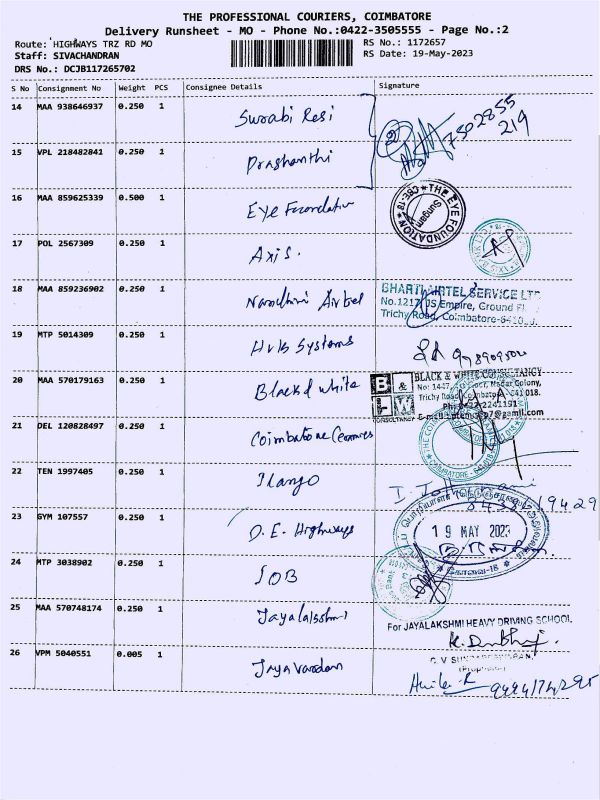 THE PROFESSIONAL COURIERS, COIMBATORE
Delivery Runsheet - MO - Phone No.:0422-3505555 - Page No.:2
Route: HIGHWAYS TRZ RD MO
RS No.: 1172657
Staff: SIVACHANDRAN
RS Date: 19-May-2023
DRS No.: DCJB117265702
S No Consignment No Weight PCS Consignee Details Signature
14 MAA 938646937 0.250 1 Surabi Resi
7502855
219
15 VPL 218482841 0.250 1 Prashanthi
16 MAA 859625339 0.500 1 Eye Foundation
★ THE EYE FOUNDATION ★ CBE-18
Sungam
17 POL 2567309 0.250 1 Axis.
18 MAA 859236902 0.250 1 Nandhini Airtel
BHARTI AIRTEL SERVICE LTD
No.1217, JS Empire, Ground
Trichy Road, Coimbatore-
19 MTP 5014309 0.250 1 Systems
20 MAA 570179163 0.250 1 Black & white
B & W
CONSULTANCY
BLACK & WHITE CONSULTANCY
Nadar Colony,
Trichy Road, Coimbatore - 641 018.
21 DEL 120828497 0.250 1 Coimbatore Ceramics
22 TEN 1997405 0.250 1 Ilango
23 GYM 107557 0.250 1 D.E. Highways
19 MAY 2023
கோவை-18
24 MTP 3038902 0.250 1 IOB
25 MAA 570748174 0.250 1 Jayalakshmi
For JAYALAKSHMI HEAVY DRIVING SCHOOL,
26 VPM 5040551 0.005 1 Jayavardan